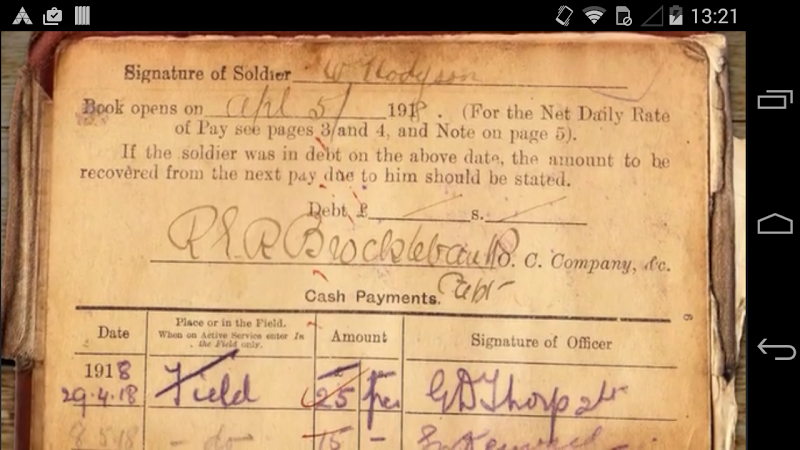 13:21
Signature of Soldier W Hodgson
Book opens on Apl 5/ 1918. (For the Net Daily Rate
of Pay see pages 3 and 4, and Note on page 5).
If the soldier was in debt on the above date, the amount to be
recovered from the next pay due to him should be stated.
Debt £ s.
Brocklebank O. C. Company, &c.
Capt
Cash Payments.
6
Date Place or in the Field. When on Active Service enter In the Field only. Amount Signature of Officer
1918
29.4.18 Field 25 GDThorp
8.5.18 - do - 15 -